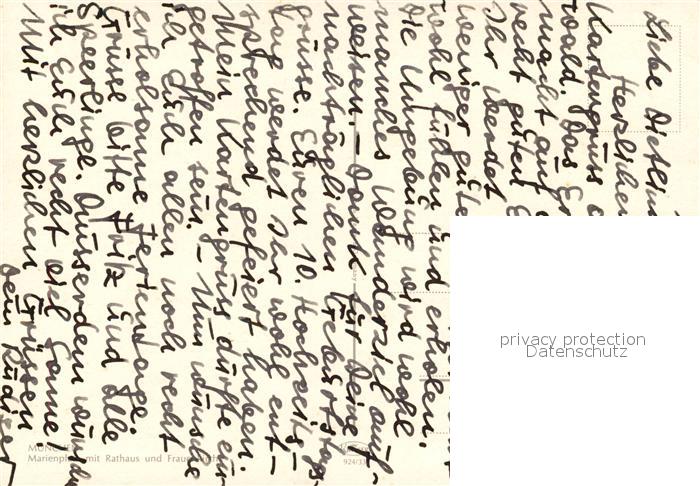 Liebe Dietlin
Herzlichen
Kartengruss
wald. Das
macht auf
recht guten
Ihr werdet
weniger gute
wohl fühlen und erholen.
die Umgebung wird wohl
manches Wanderziel auf-
weisen. – Dank für Deine
nachträglichen Geburtstags-
grüsse. Euren 10. Hochzeits-
tag werdet Ihr wohl ent-
sprechend gefeiert haben.
Mein Kartengruss dürfte ein-
getroffen sein. – Nun wünsche
ich Euch allen noch recht
erholsame Ferientage.
Grüsse bitte Fritz und alle
Speerlinge. Ausserdem wünsche
ich Euch recht viel Sonne!
Mit herzlichen Grüssen
Dein Rüdiger
MÜNCHEN
Marienplatz mit Rathaus und Frauenkirche
924/33
privacy protection
Datenschutz